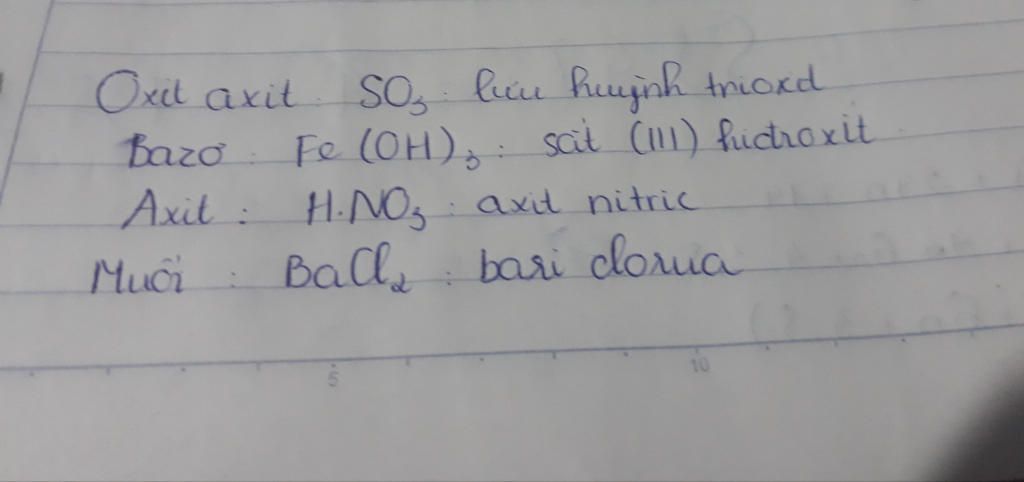 Oxit axit : SO₃ : lưu huỳnh trioxd
Bazơ : Fe(OH)₃ : sắt (III) hiđroxit
Axit : H.NO₃ : axit nitric
Muối : BaCl₂ : bari clorua
5 10